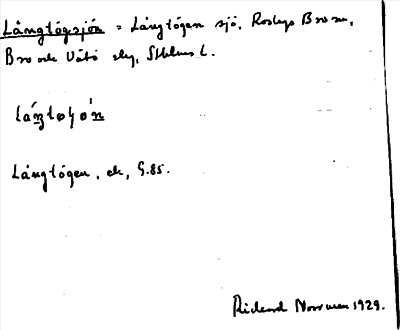 Långtögsjön = Långtögen sjö, Roslags Bro sn,
Bro och Vätö skg, Sthlms L.
Långtögen, ek, G.85.
Rickard Norrman 1929.